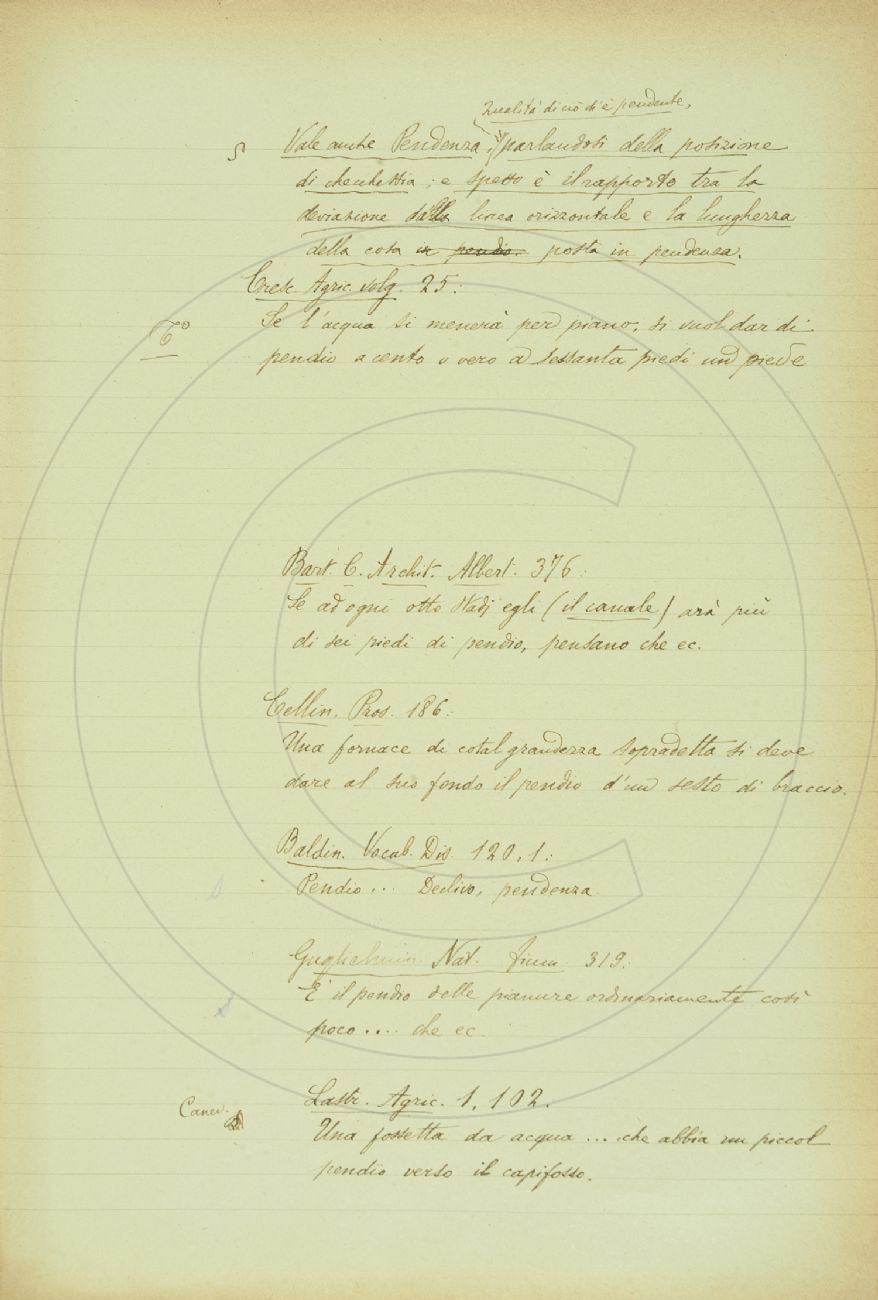 Qualità di ciò ch'è pendente,
§ Vale anche Pendenza, parlandosi della posizione
di checchessia; e spesso è il rapporto tra la
deviazione dalla linea orizzontale e la lunghezza
della cosa in pendio. posta in pendenza.
Cresc. Agric. volg. 25:
Se l'acqua si menerà per piano, si vuol dar di
T.º
pendio a cento o vero a sessanta piedi un piede
Bart. C. Archit. Albert. 376:
Se ad ogni otto stadj egli (il canale) arà più
di sei piedi di pendio, pensano che ec.
Cellin. Pros. 186:
Una fornace di cotal grandezza sopradetta si deve
dare al suo fondo il pendio d'un sesto di braccio.
Baldin. Vocab. Dis. 120, 1:
Pendio... Declivo, pendenza.
Guglielmin. Nat. fium. 319:
È il pendio delle pianure ordinariamente così
poco.... che ec.
Lastr. Agric. 1, 102.
Una fossetta da acqua ... che abbia un piccol
pendio verso il capifosso.